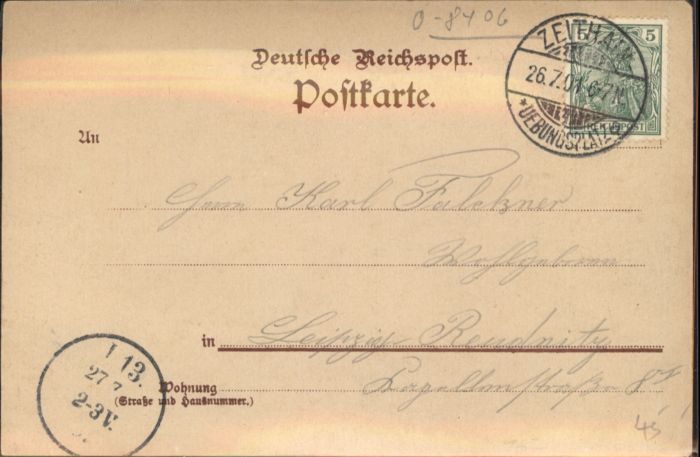 0-8406
Deutsche Reichspost.
Postkarte.
ZEITHAIN
26.7.01.6-7N.
*UEBUNGSPLATZ*
5 5
REICHSPOST
An
Herrn Karl Falckner
Wohlgeboren
in Leipzig-Reudnitz
Wohnung Kapellenstraße 8
(Straße und Hausnummer.)
13.
27 7
2-3V.
45